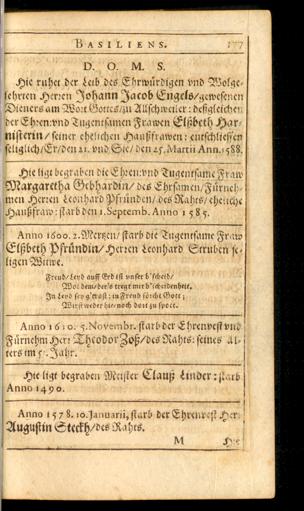 BASILIENS. 177
D. O. M. S.
Hie ruhet der Leib des Ehrwürdigen vnd Wolge-
lehrten Herren Johann Jacob Engels/gewesenen
Dieners am Wort Gottes/zu Allschweiler: desgleichen
der Ehren: vnd Tugentsamen Frawen Elßbeth Har-
nisterin/seiner ehelichen Haußfrawen: entschlieffen
seliglich/Er/den 21. vnd Sie/den 25. Martii Ann. 1588.
Hie ligt begraben die Ehren: vnd Tugentsame Fraw
Margaretha Gebhardin/des Ehrsamen/Fürneh-
men Herren Leonhard Pfründen/des Rahts/eheliche
Haußfraw: starb den 1. Septemb. Anno 1585.
Anno 1600. 2. Mertzen/starb die Tugentsame Fraw
Elßbeth Pfründin/Herren Leonhard Struben se-
ligen Witwe.
Freud/Leyd auff Erd ist vnser b'scheid/
Wol dem/der's tregt mit b'scheidenheit.
In Leyd sey g'trost: in Freud förcht Gott:
Wirst weder hie/noch dort zu spott.
Anno 1610. 5. Novembr. starb der Ehrenvest vnd
Fürnehm Herr Theodor Zoß/des Rahts: seines Al-
ters im Jahr.
Hie ligt begraben Meister Clauß Linder: starb
Anno 1490.
Anno 1578. 10. Januarii, starb der Ehrenvest Herr
Augustin Steckh/des Rahts.
M Hie